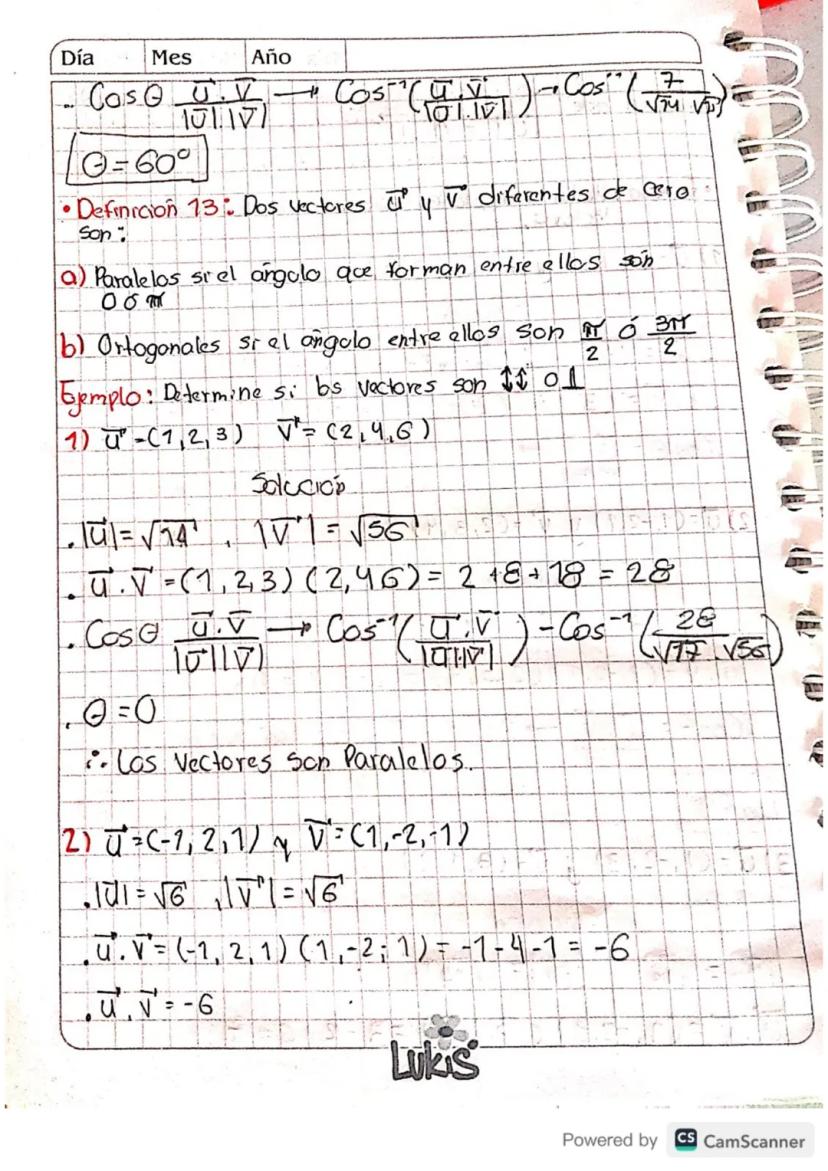 Día Mes Año
.. Cos θ u⃗.v⃗/|u⃗|.|v⃗| → Cos⁻¹(u⃗.v⃗/|u⃗|.|v⃗|) → Cos⁻¹(7/√14 √14)
θ = 60°
• Definición 13: Dos vectores u⃗ y v⃗ diferentes de cero
son:
a) Paralelos si el angulo que forman entre ellos són
0 ó π
b) Ortogonales si el angulo entre ellos son π/2 ó 3π/2
Ejemplo: Determine si los vectores son ↕↕ o ⊥
1) u⃗ = (1, 2, 3) v⃗ = (2, 4, 6)
Solución
. |u⃗| = √14 , |v⃗| = √56
. u⃗.v⃗ = (1, 2, 3) (2, 4 6) = 2 + 8 + 18 = 28
. Cos θ u⃗.v⃗/|u⃗||v⃗| → Cos⁻¹(u⃗.v⃗/|u⃗|.|v⃗|) - Cos⁻¹(28/√17 . √56)
. θ = 0
∴ Los vectores son Paralelos.
2) u⃗ = (-1, 2, 1) y v⃗ = (1, -2, -1)
. |u⃗| = √6 , |v⃗| = √6
. u⃗.v⃗ = (-1, 2, 1) (1, -2; 1) = -1 - 4 - 1 = -6
. u⃗.v⃗ = -6
Lukis
Powered by CS CamScanner